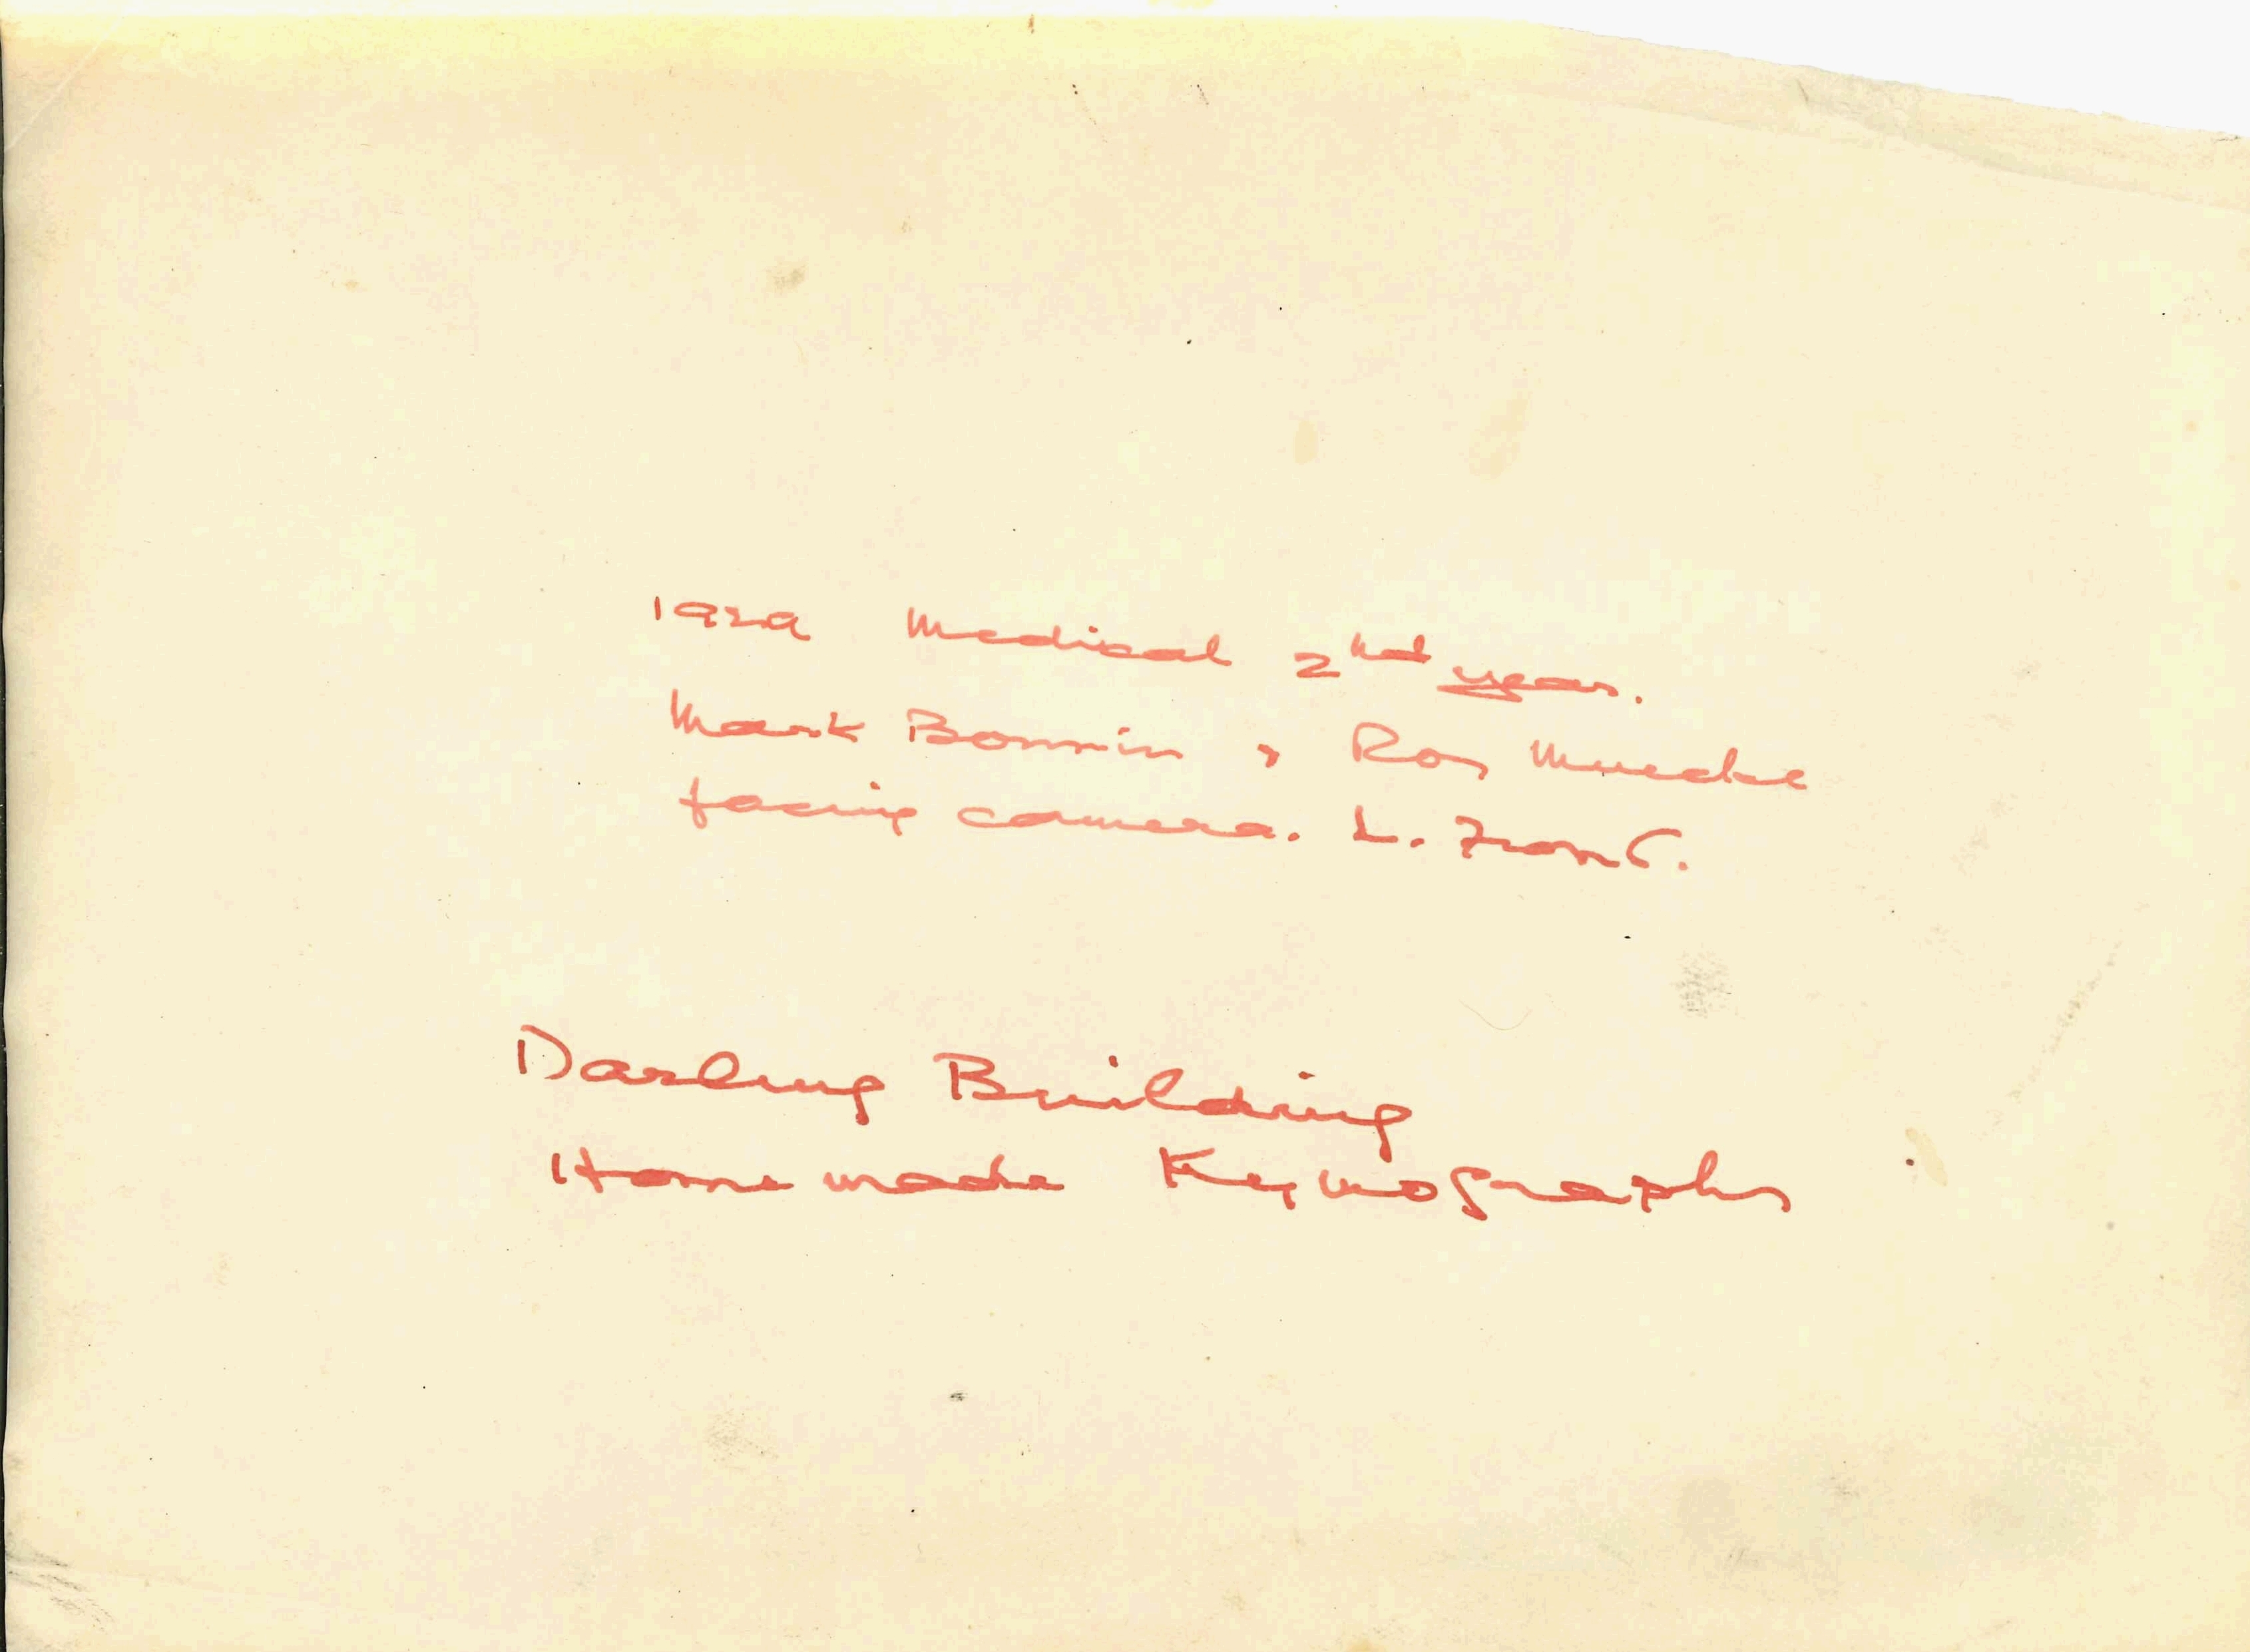 1929 Medical 2nd year.
Mark Bonnin, Ros Muecke
facing camera. L. Front.
Darling Building
Home made Kymographs